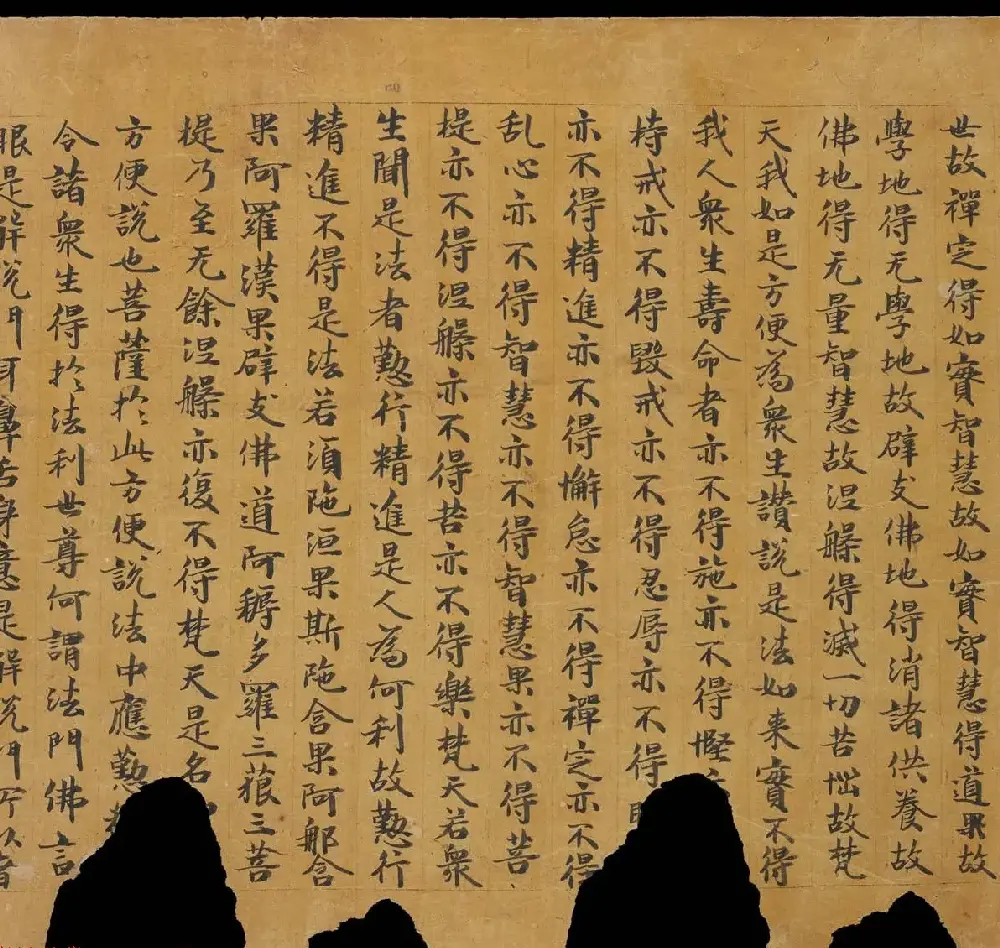 世故禪定得如實智慧故如實智慧得道果故
學地得无學地故辟支佛地得消諸供養故
佛地得无量智慧故涅槃得滅一切苦惱故梵
天我如是方便為衆生讃說是法如来實不得
我人衆生壽命者亦不得施亦不得慳
持戒亦不得毀戒亦不得忍辱亦不得
亦不得精進亦不得懈怠亦不得禪定亦不得
乱心亦不得智慧亦不得智慧果亦不得菩
提亦不得涅槃亦不得苦亦不得樂梵天若衆
生聞是法者懃行精進是人為何利故懃行
精進不得是法若須陁洹果斯陁含果阿那含
果阿羅漢果辟支佛道阿耨多羅三藐三菩
提乃至无餘涅槃亦復不得梵天是名
方便說也菩薩於此方便說法中應懃
令諸衆生得於法利世尊何謂法門佛言
眼是解脫門耳鼻舌身意是解脫門所以者